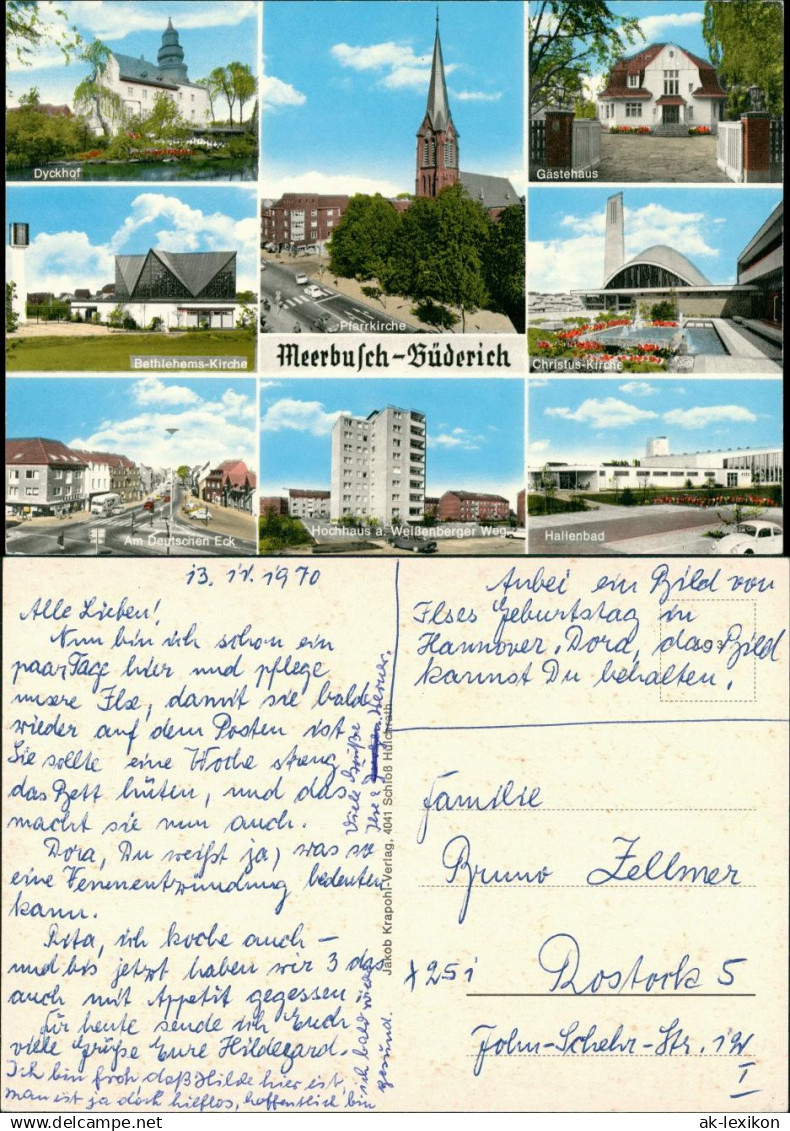 Dyckhof
Pfarrkirche
Gästehaus
Bethlehems-Kirche
Meerbusch-Büderich
Christus-Kirche
Am Deutschen Eck
Hochhaus a. Weißenberger Weg
Hallenbad
13. 11. 1970
Alle Lieben!
Nun bin ich schon ein
paar Tage hier und pflege
unsere Ilse, damit sie bald
wieder auf dem Posten ist.
Sie sollte eine Woche streng
das Bett hüten, und das
macht sie nun auch.
Dora, Du weißt ja, was so
eine Venenentzündung bedeuten
kann.
Rita, ich koche auch –
und bis jetzt haben wir 3 das
auch mit Appetit gegessen.
Für heute sende ich Euch
viele Grüße Eure Hildegard.
Ich bin froh, daß Hilde hier ist,
man ist ja doch hilflos, hoffentlich bin
ich bald wieder
gesund.
Viele Grüße
Ilse & Werner.
Jakob Krapohl-Verlag, 4041 Schloß Hülchrath
Anbei ein Bild von
Ilses Geburtstag in
Hannover. Dora, das Bild
kannst Du behalten.
Familie
Bruno Zellmer
x 251
Rostock 5
John-Schehr-Str. 12
I
ak-lexikon